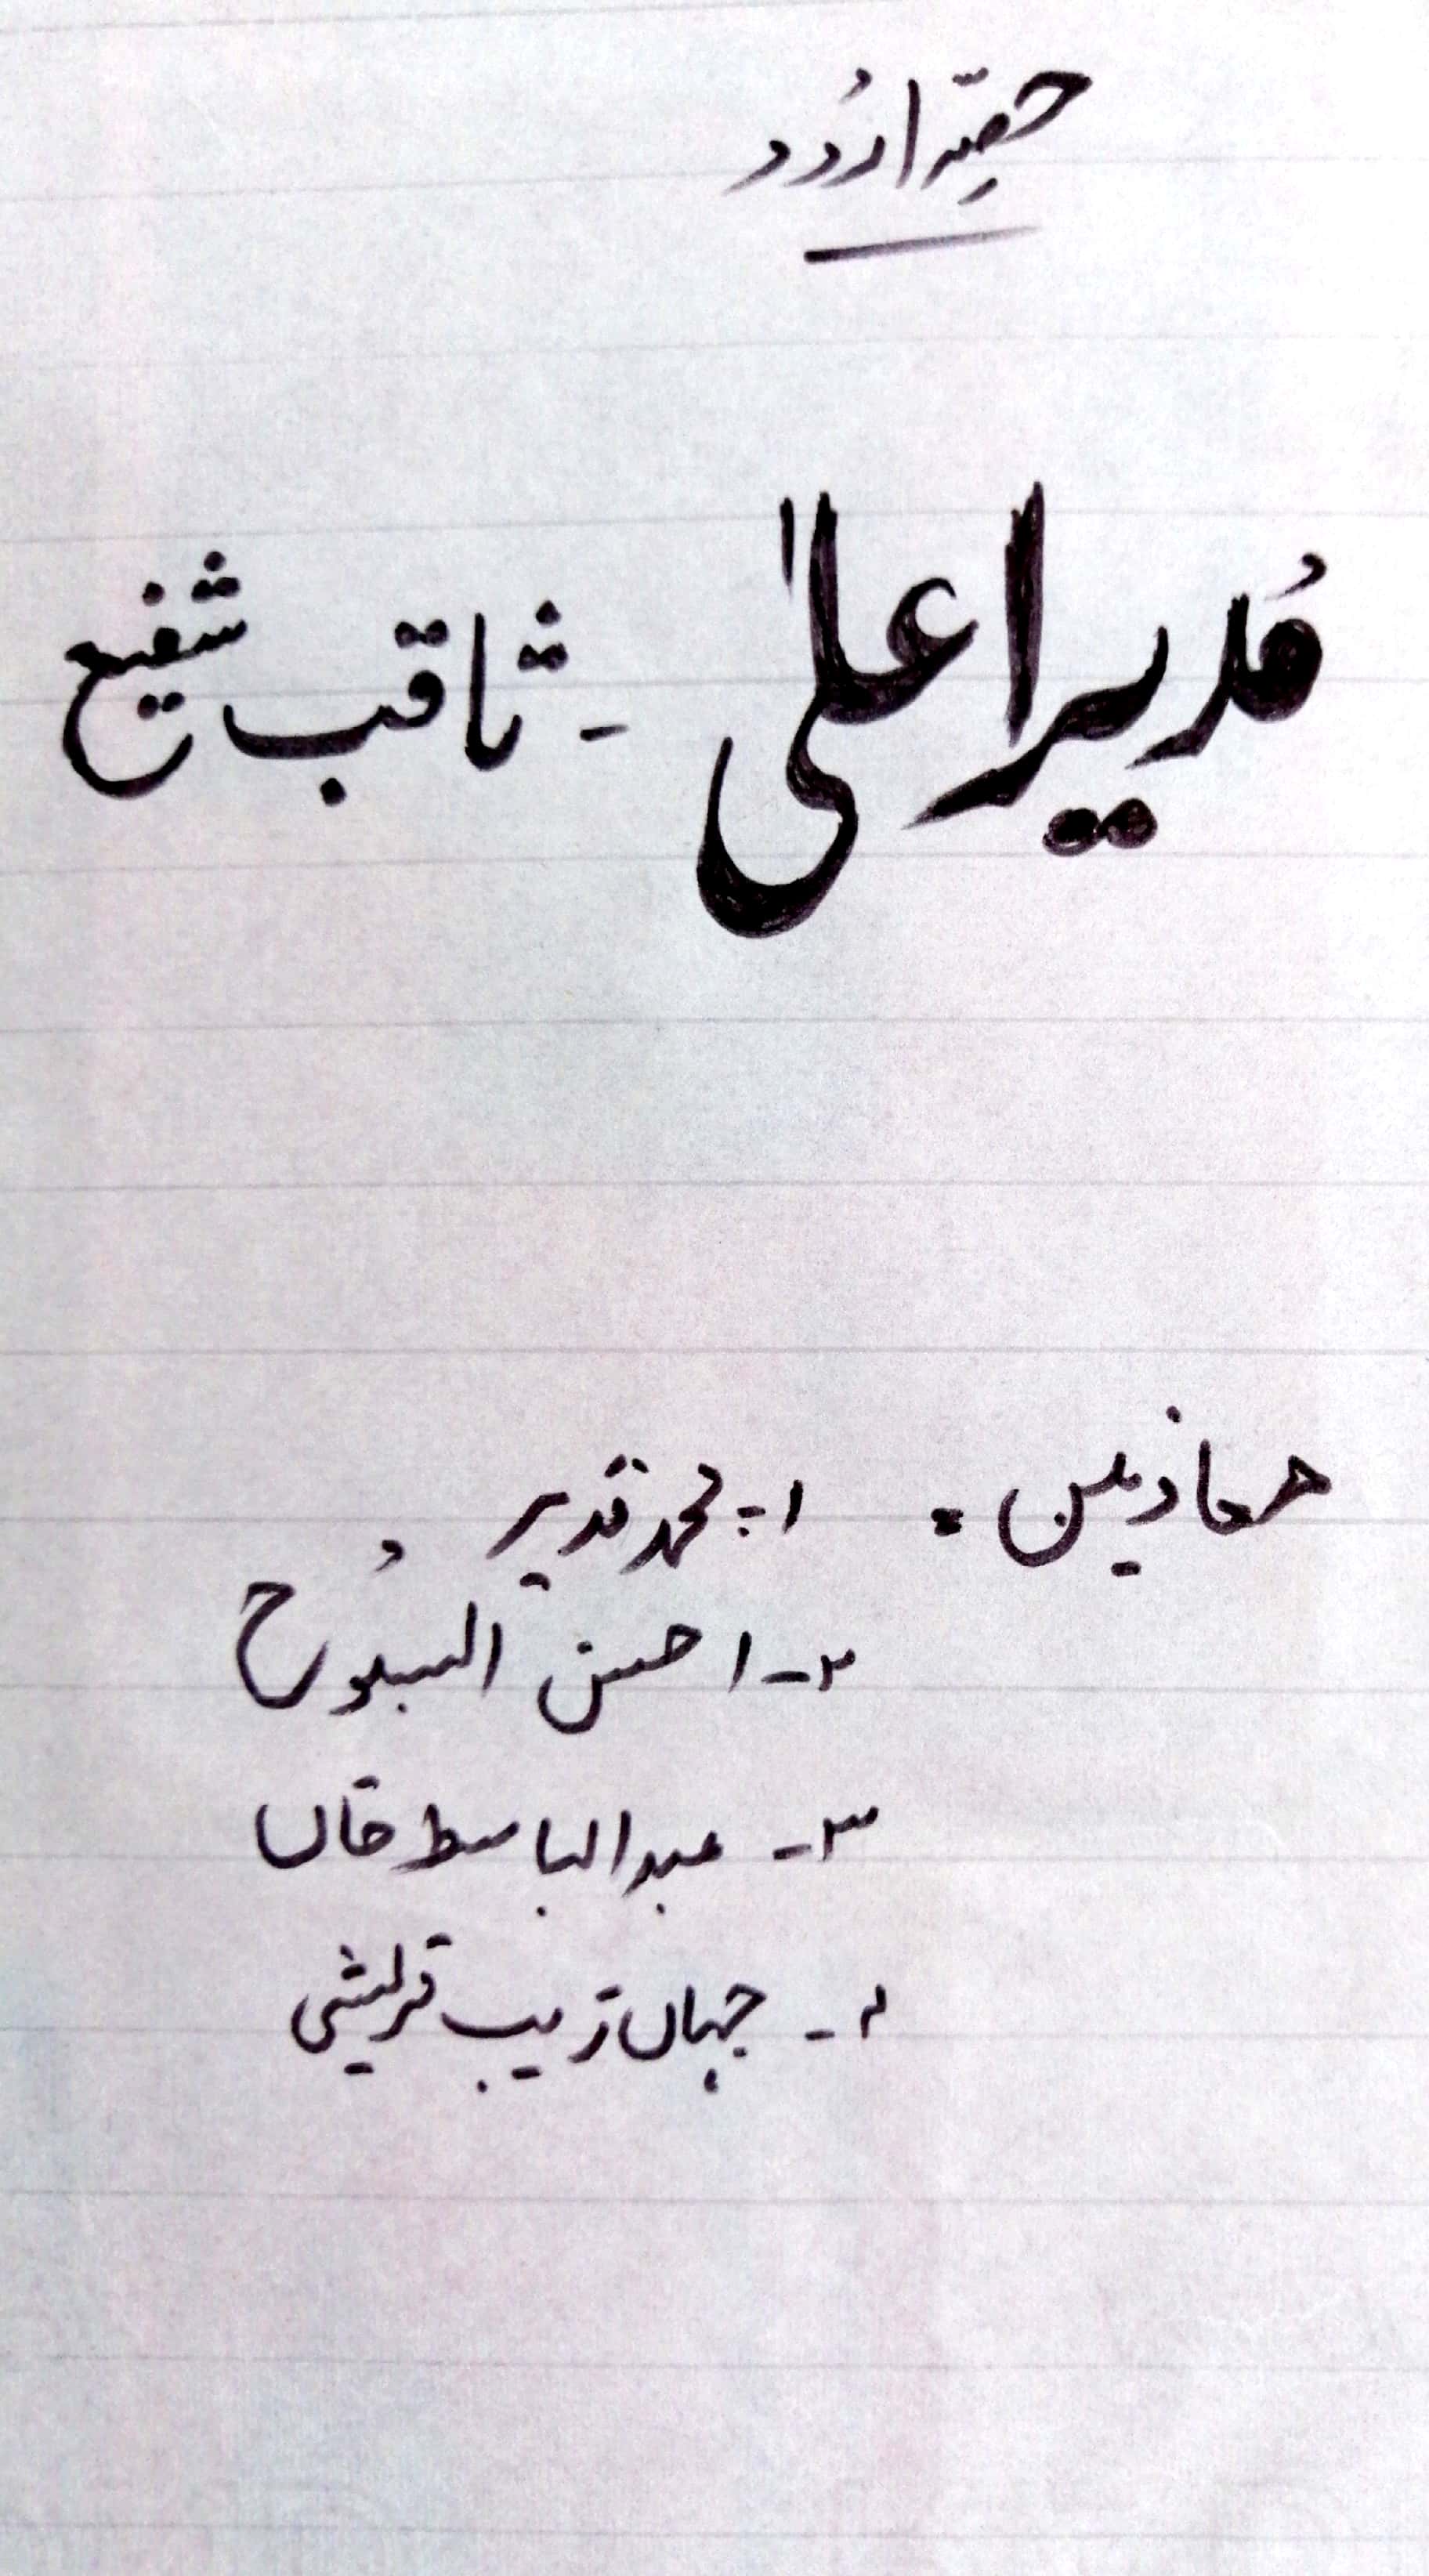 حصِّہ اُردو
مُدیر اعلیٰ - ثاقب شفیع
معاونین: ۱- محمد قدیر
۲- احسن السبُوح
۳- عبدالباسط خان
۴- جہاں زیب قریشی